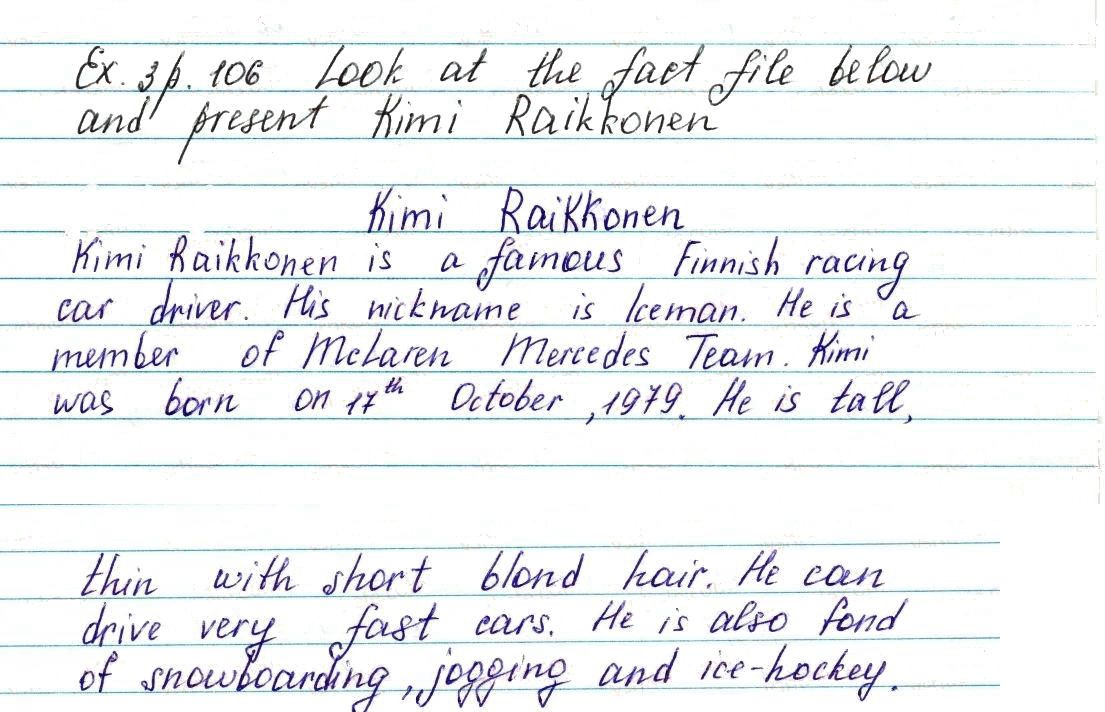 Ex. 3 p. 106 Look at the fact file below
and present Kimi Raikkonen
Kimi Raikkonen
Kimi Raikkonen is a famous Finnish racing
car driver. His nickname is Iceman. He is a
member of McLaren Mercedes Team. Kimi
was born on 17th October, 1979. He is tall,
thin with short blond hair. He can
drive very fast cars. He is also fond
of snowboarding, jogging and ice-hockey.